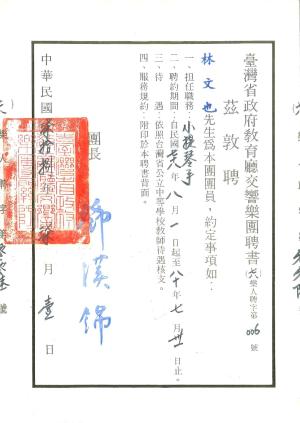 臺灣省政府教育廳交響樂團聘書 樂人聘字第006號
茲敦聘
林文也先生為本團團員,約定事項如:
一、担任職務:小提琴手
二、聘約期間:自民國年八月一日起至八十年七月卅一日止。
三、待遇:依照台灣省公立中等學校教師待遇核支。
四、服務規約:附印於本聘書背面。
團長 鄧漢錦
中華民國 月壹日